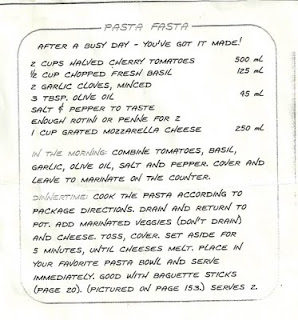 PASTA FASTA
AFTER A BUSY DAY - YOU'VE GOT IT MADE!
2 CUPS HALVED CHERRY TOMATOES 500 mL
½ CUP CHOPPED FRESH BASIL 125 mL
2 GARLIC CLOVES, MINCED
3 TBSP. OLIVE OIL 45 mL
SALT & PEPPER TO TASTE
ENOUGH ROTINI OR PENNE FOR 2
1 CUP GRATED MOZZARELLA CHEESE 250 mL
IN THE MORNING: COMBINE TOMATOES, BASIL,
GARLIC, OLIVE OIL, SALT AND PEPPER. COVER AND
LEAVE TO MARINATE ON THE COUNTER.
DINNERTIME: COOK THE PASTA ACCORDING TO
PACKAGE DIRECTIONS. DRAIN AND RETURN TO
POT. ADD MARINATED VEGGIES (DON'T DRAIN)
AND CHEESE. TOSS, COVER. SET ASIDE FOR
5 MINUTES, UNTIL CHEESES MELT. PLACE IN
YOUR FAVORITE PASTA BOWL AND SERVE
IMMEDIATELY. GOOD WITH BAGUETTE STICKS
(PAGE 20). (PICTURED ON PAGE 153.) SERVES 2.